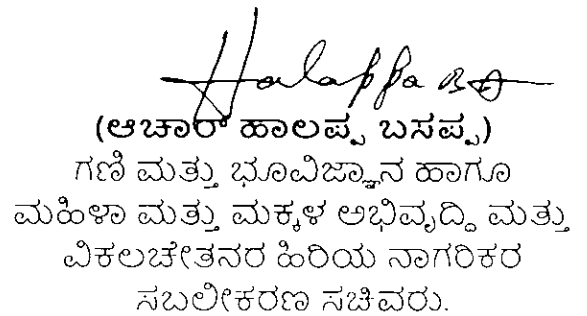 Halappa B A
(ಆಚಾರ್ ಹಾಲಪ್ಪ ಬಸಪ್ಪ)
ಗಣಿ ಮತ್ತು ಭೂವಿಜ್ಞಾನ ಹಾಗೂ
ಮಹಿಳಾ ಮತ್ತು ಮಕ್ಕಳ ಅಭಿವೃದ್ಧಿ ಮತ್ತು
ವಿಕಲಚೇತನರ ಹಿರಿಯ ನಾಗರಿಕರ
ಸಬಲೀಕರಣ ಸಚಿವರು.